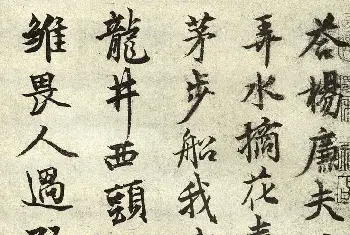 答楊廉夫
弄水摘花春
茅步船我
龍井西頭
雏畏人過